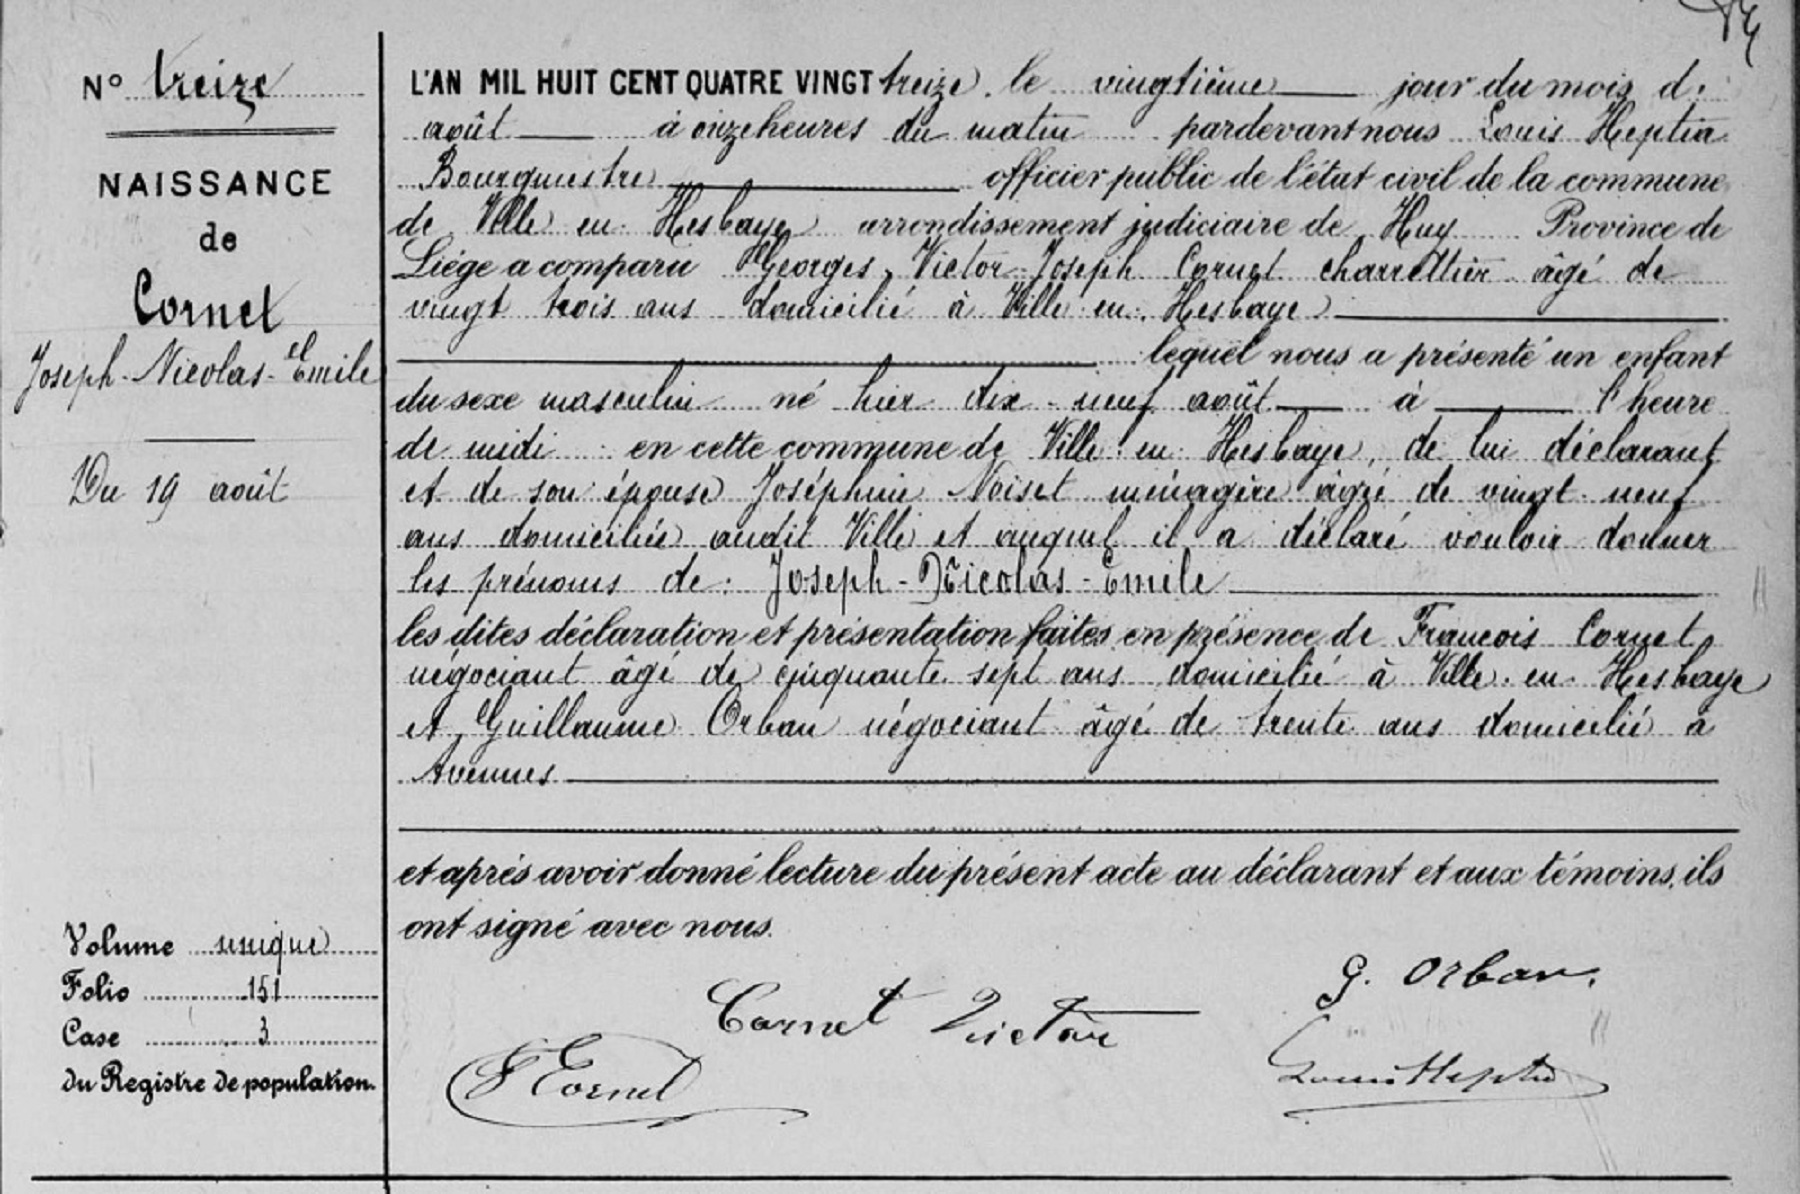 N° treize
NAISSANCE
de
Cornet
Joseph-Nicolas-Emile
Du 19 août
Volume unique
Folio 151
Case 3
du Registre de population.
L'AN MIL HUIT CENT QUATRE VINGT treize, le vingtième jour du mois d.
août à onze heures du matin pardevant nous Louis Heptia
Bourgmestre officier public de l'état civil de la commune
de Ville en Hesbaye arrondissement judiciaire de Huy Province de
Liége a comparu Georges, Victor Joseph Cornet charrettier âgé de
vingt trois ans domicilié à Ville en Hesbaye
lequel nous a présenté un enfant
du sexe masculin né hier dix-neuf août à l'heure
de midi en cette commune de Ville en Hesbaye, de lui déclarant
et de son épouse Joséphine Noiset ménagère âgée de vingt neuf
ans domiciliée audit Ville et auquel il a déclaré vouloir donner
les prénoms de: Joseph-Nicolas-Emile
les dites déclaration et présentation faites en présence de François Cornet
négociant âgé de cinquante sept ans domicilié à Ville en Hesbaye
et Guillaume Orban négociant âgé de trente ans domicilié à
Avennes
et après avoir donné lecture du présent acte au déclarant et aux témoins, ils
ont signé avec nous.
G. Orban.
Cornet Victor
F Cornet
Louis Heptia